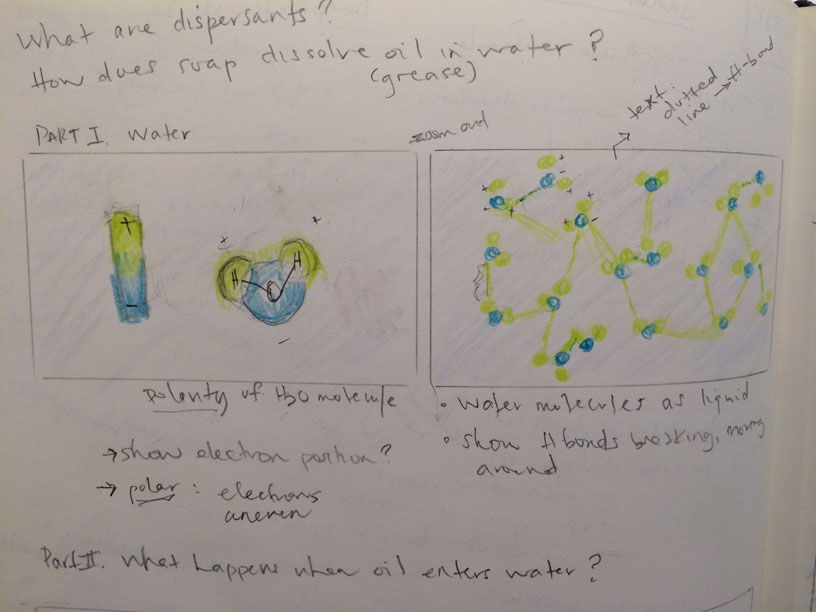 What are dispersants?
How does soap dissolve oil in water?
(grease)
PART I. Water
zoom out
text:
dotted
line → H-bond
+
-
H
H
O
+
+
-
Polarity of H2O molecule
→ show electron portion?
→ polar : electrons
uneven
• Water molecules as liquid
• show H bonds breaking, moving
around
Part II. What happens when oil enters water?